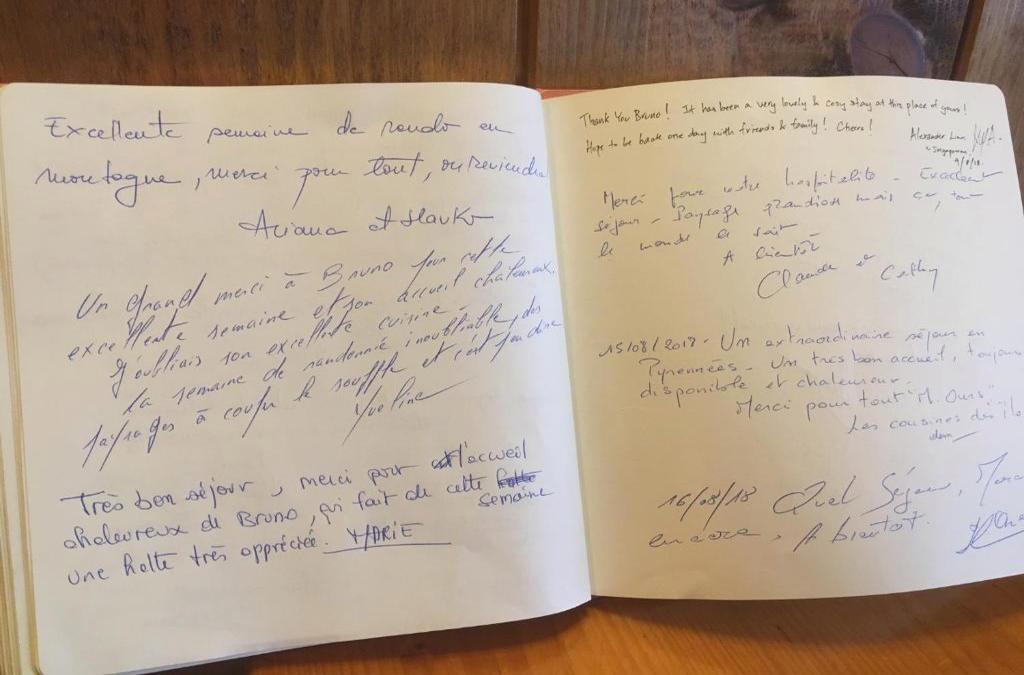 Excellente semaine de rando en
montagne, merci pour tout, on reviendra
Ariana et
Un grand merci à Bruno pour cette
excellente semaine et son accueil chaleureux.
J'oubliais son excellente cuisine.
La semaine de randonnée inoubliable, des
paysages à couper le souffle et c'est peu dire
Yveline
Très bon séjour, merci pour l'accueil
chaleureux de Bruno, qui fait de cette
semaine
une halte très appréciée.
Thank You Bruno! It has been a very lovely & cosy stay at this place of yours!
Hope to be back one day with friends & family! Cheers!
Alexander Lim
Singaporean
9/8/18.
Merci pour votre hospitalité - Excellent
séjour - Paysage grandiose mais ça, tout
le monde le sait
A bientôt
Claude et Cathy
15/08/2018 - Un extraordinaire séjour en
Pyrennées - Un très bon accueil, toujours
disponible et chaleureux.
Merci pour tout "M. Ours"
Les cousines des
16/08/18 Quel Séjour, Merci
encore, A bientôt.